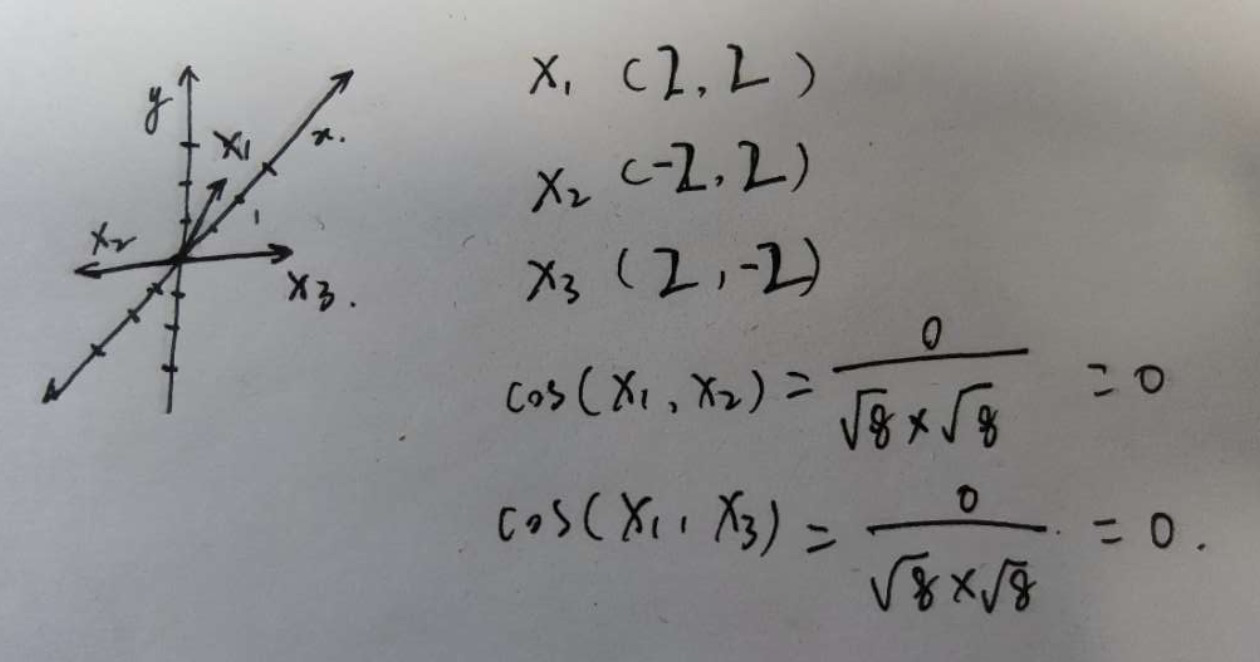 y
X₁
x.
1
X₂
X₃.
X₁ (2, 2)
X₂ (-2, 2)
X₃ (2, -2)
cos(X₁, X₂) = 0 / (√8 × √8) = 0
cos(X₁, X₃) = 0 / (√8 × √8) = 0.